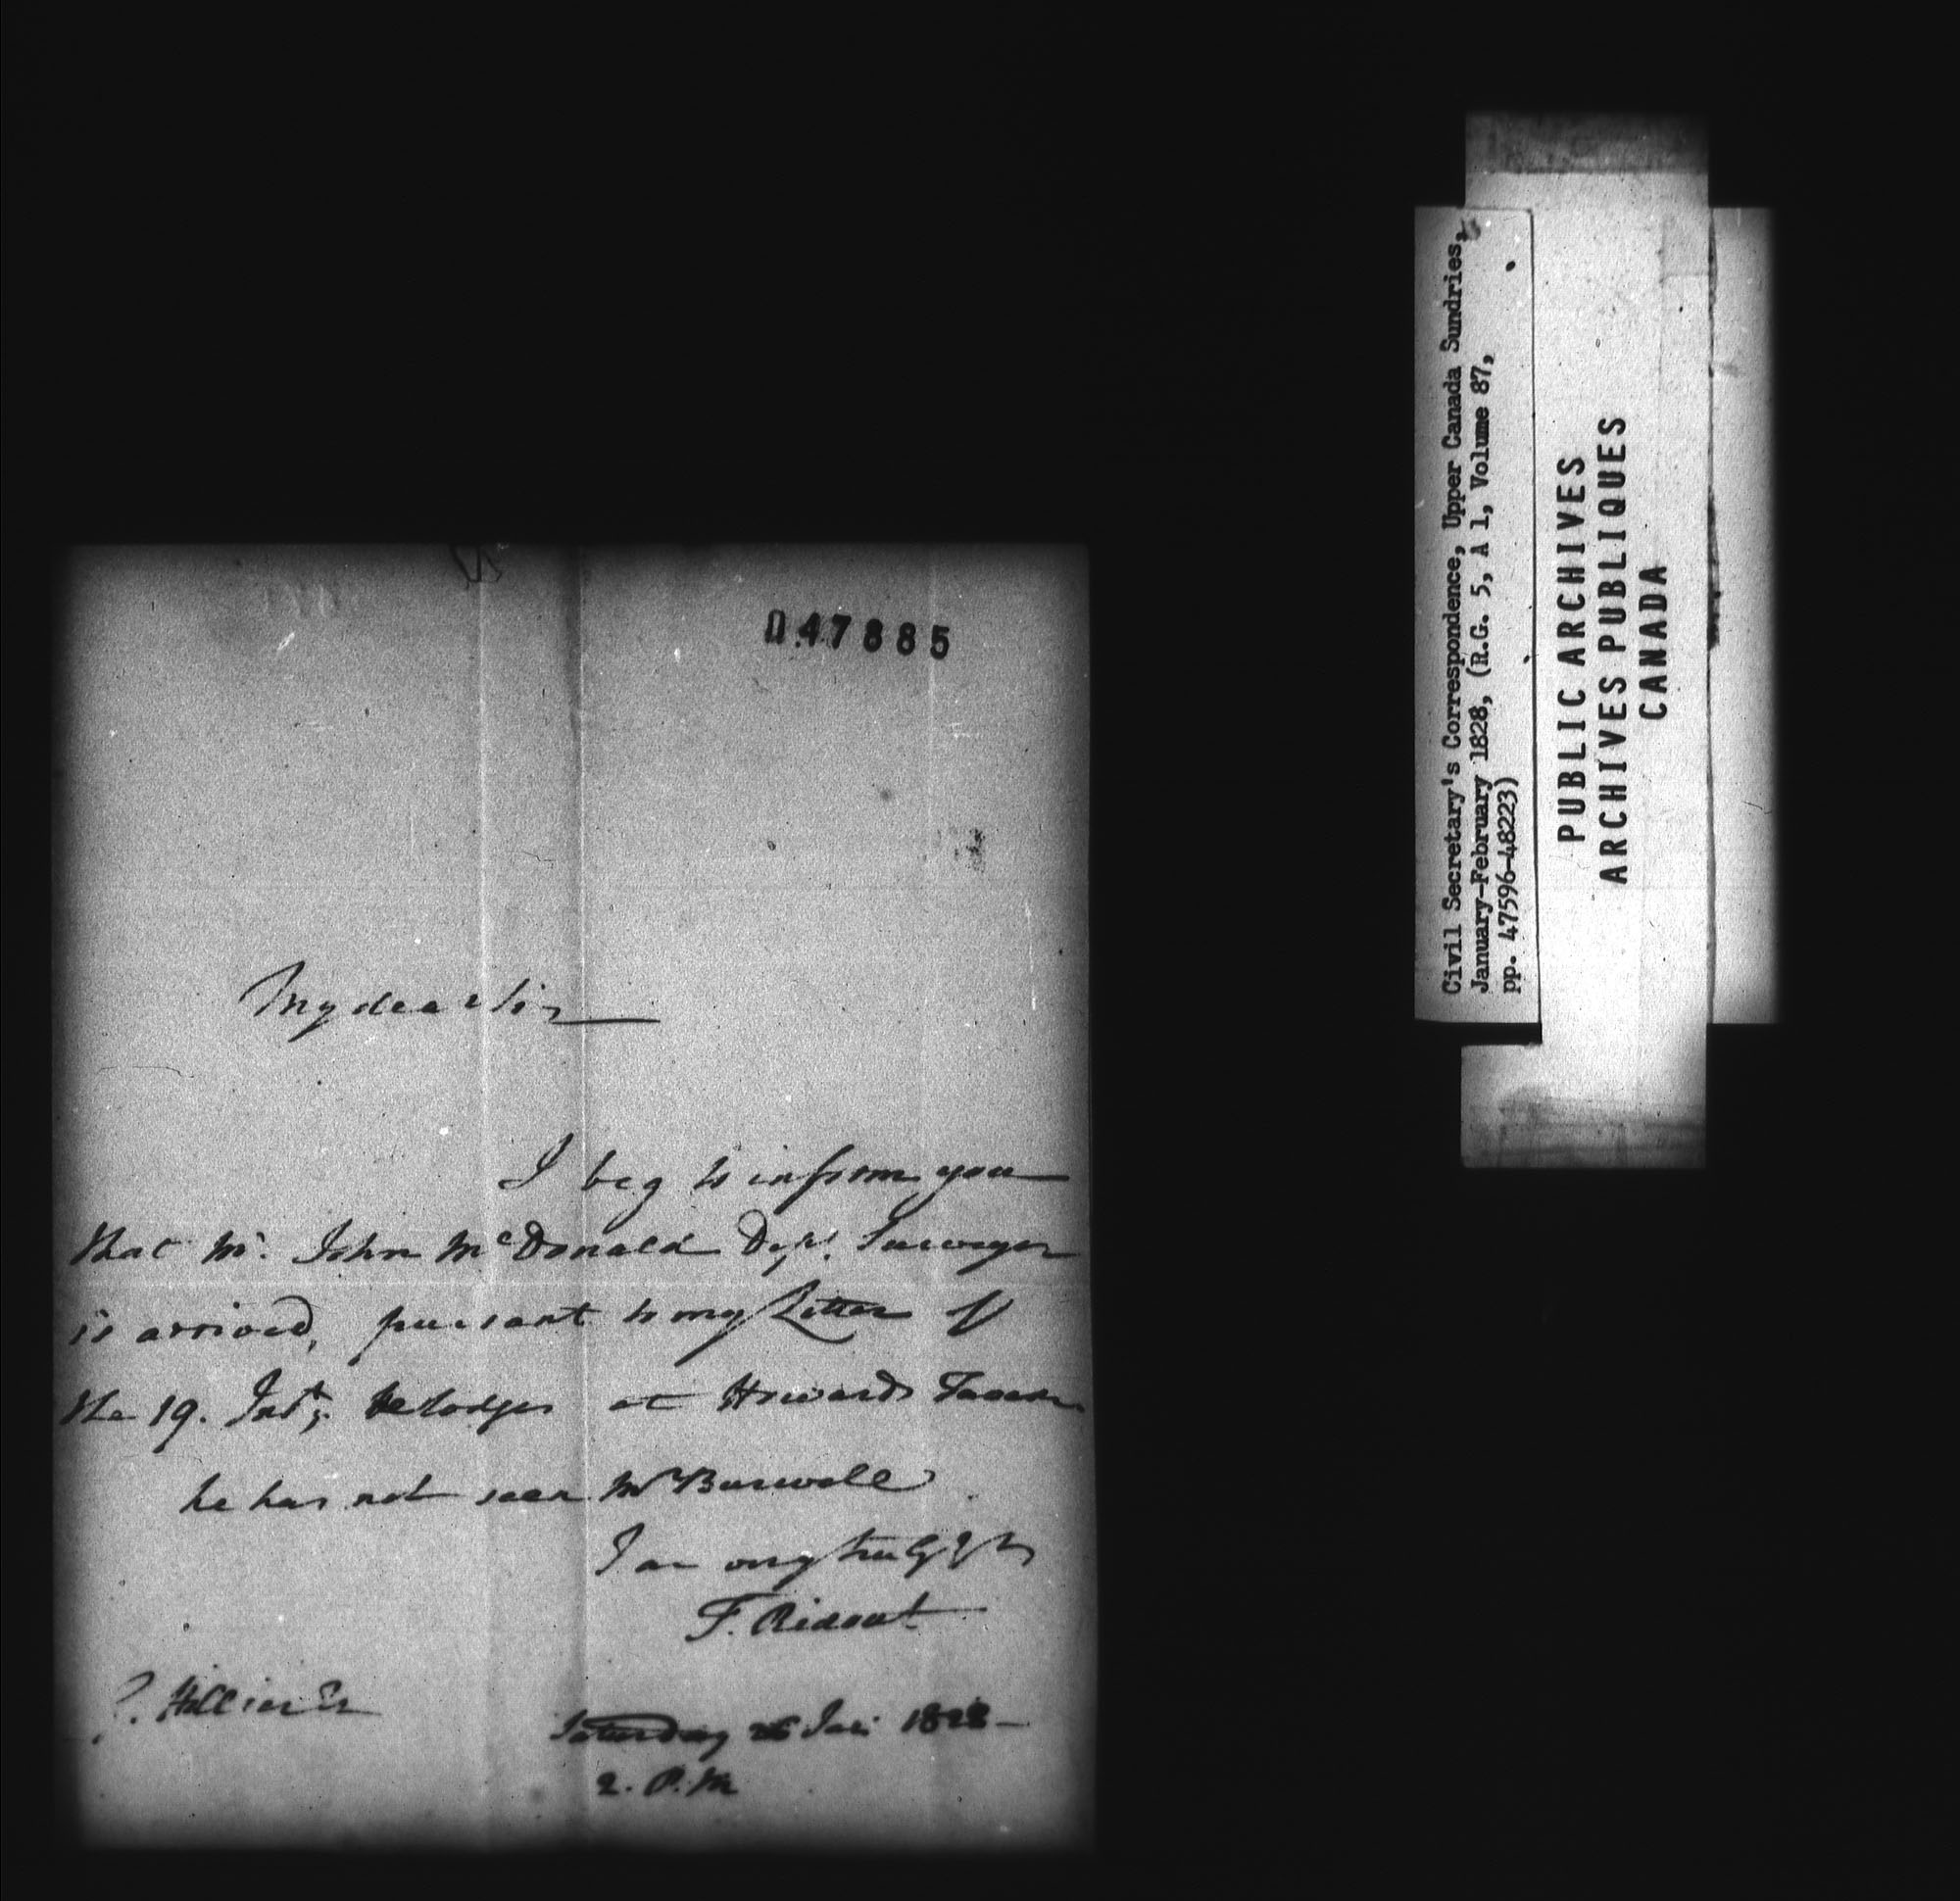 047885
My dear Sir
I beg to inform you
that Mr. John McDonald Depy. Surveyor
is arrived, pursuant to my Letter of
the 19. Inst; he lodges at Howards Tavern
he has not seen Mr Burwell
I am very truly Yrs
T. Ridout
Hillier Esq
Saturday 26 Jan: 1828
2. P.M
Civil Secretary's Correspondence, Upper Canada Sundries,
January-February 1828, (R.G. 5, A 1, Volume 87,
pp. 47596-48223)
PUBLIC ARCHIVES
ARCHIVES PUBLIQUES
CANADA